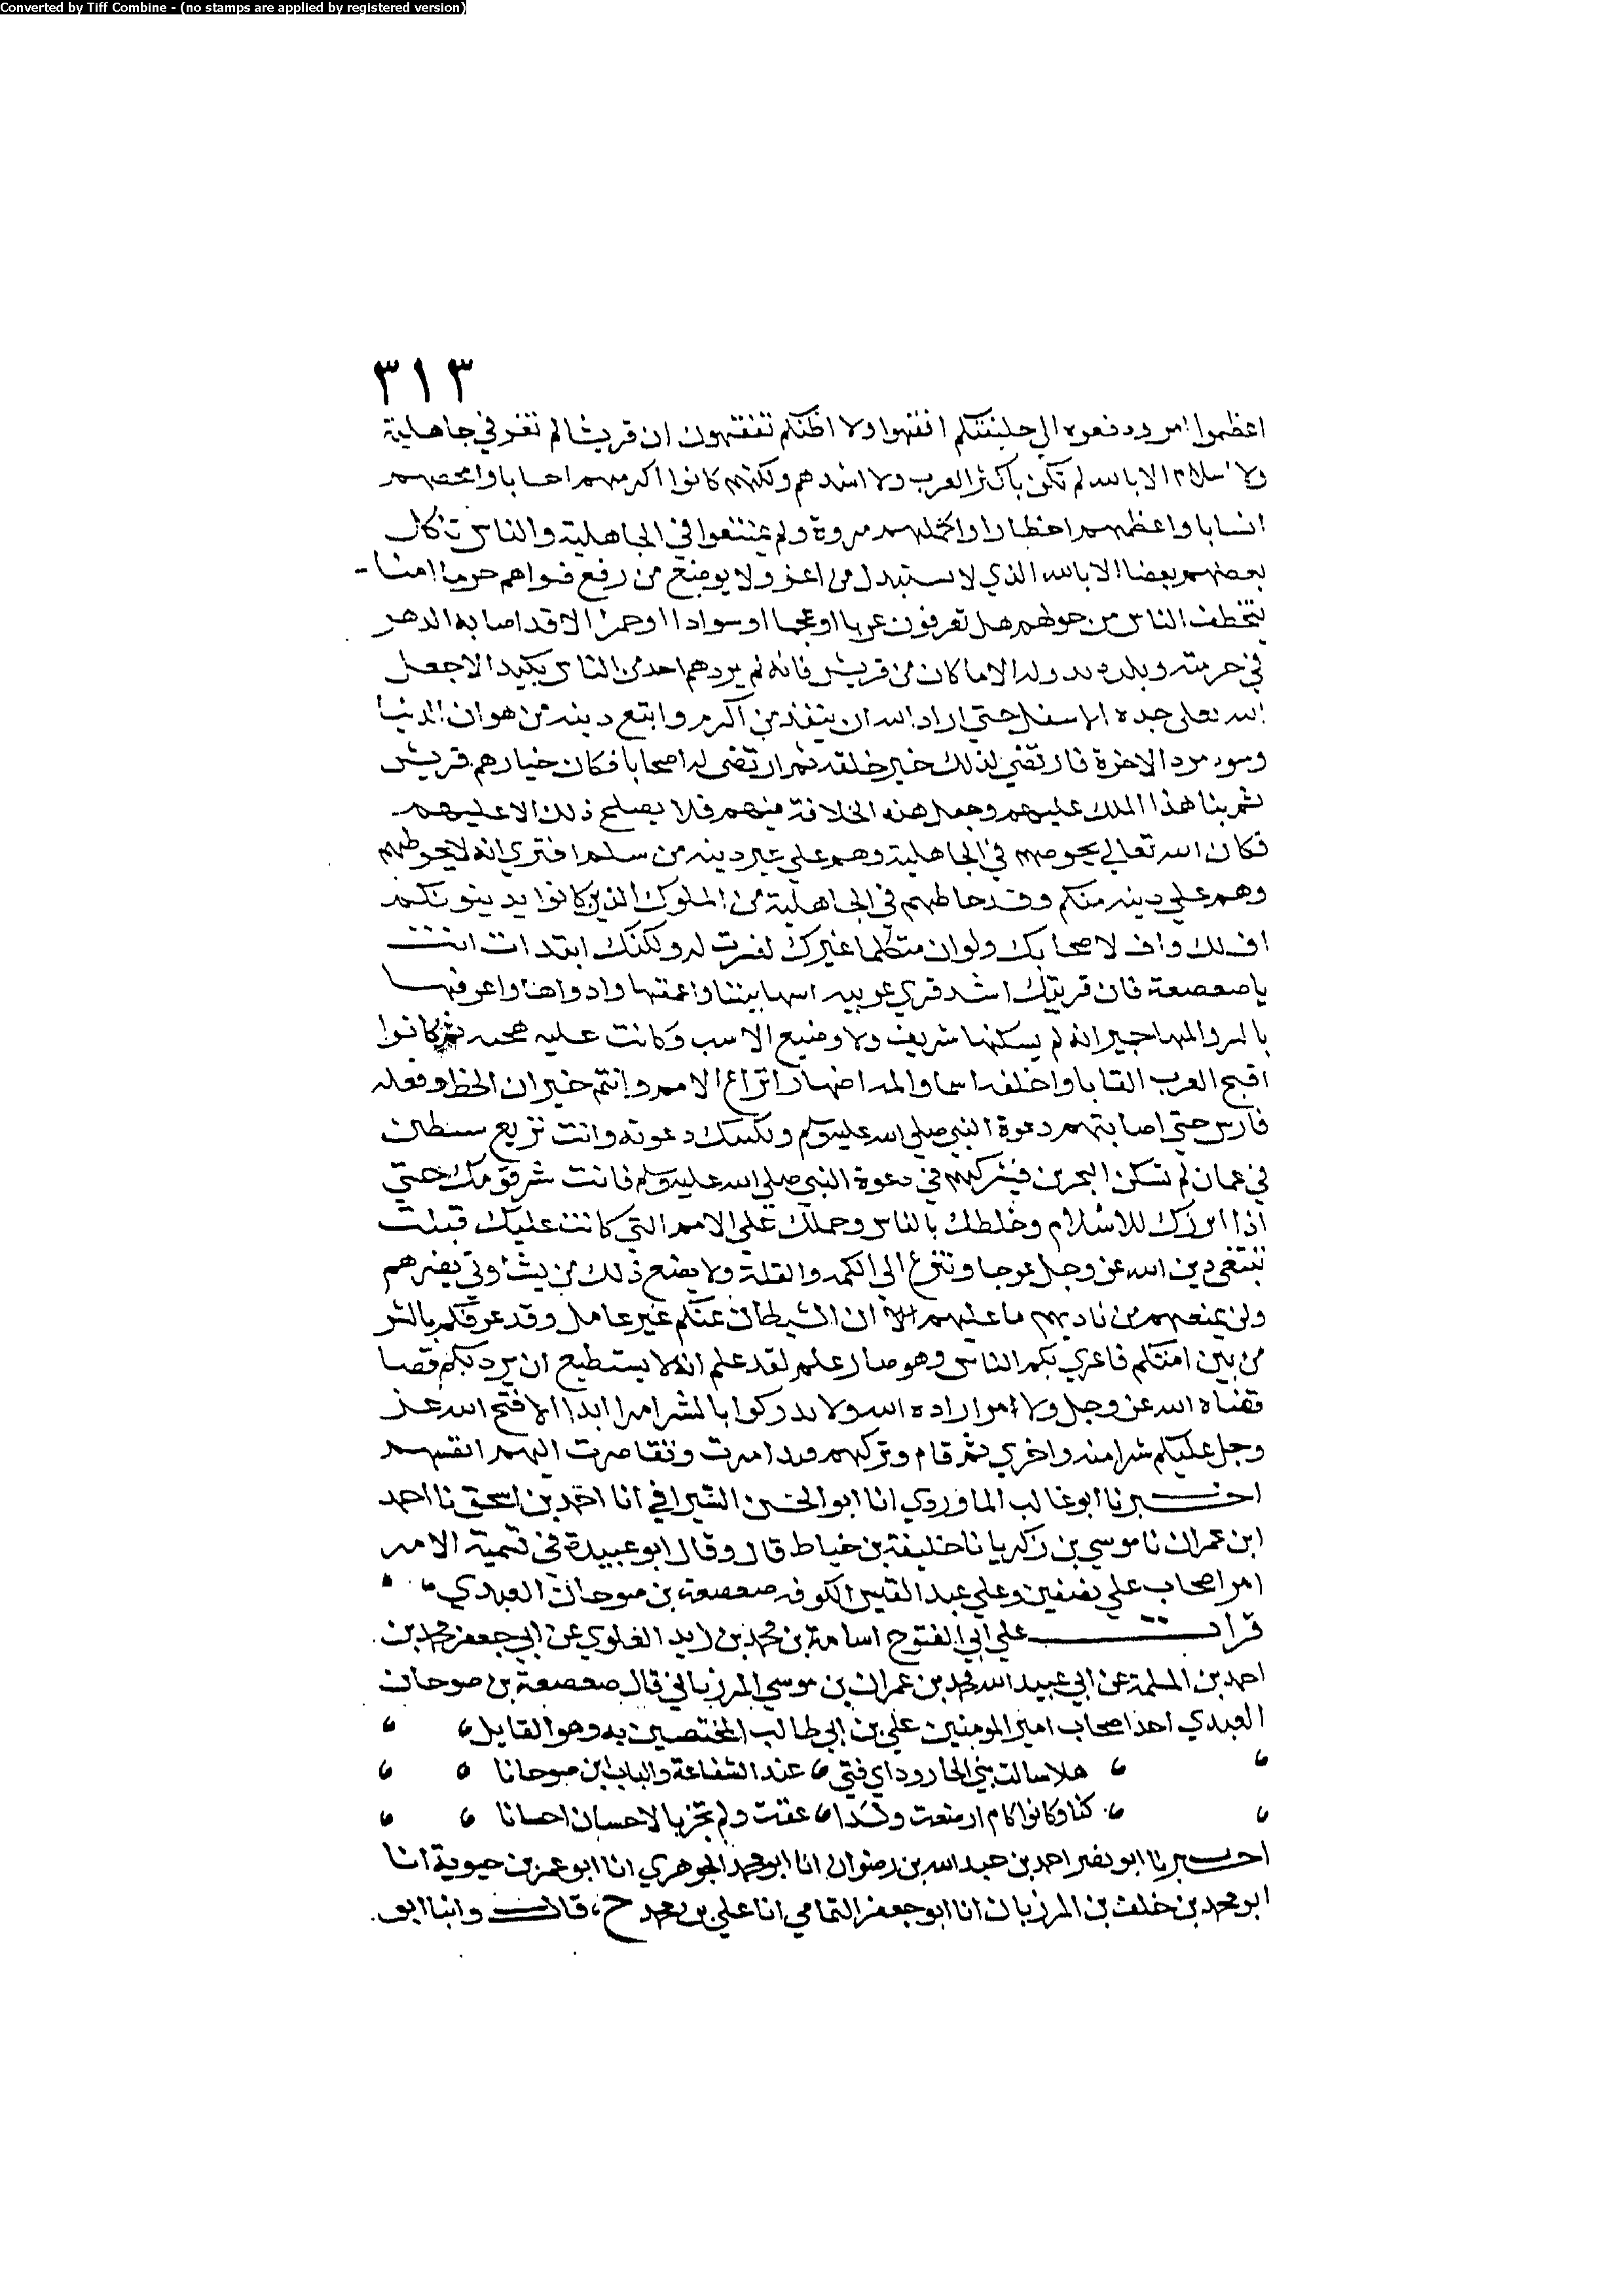 Converted by Tiff Combine - (no stamps are applied by registered version)
٣١٣
اعظموا امر ودفعوه الي خليفتكم افقهوا ولا اظنكم تفقهون ان قريشا لم تعز في جاهلية
ولا اسلام الا بالله لم تكن باكثر العرب ولا اشدهم ولكنهم كانوا اكرمهم احسابا وامحضهم
انسابا واعظمهم اخطارا واكملهم مروة ولم يمتنعوا في الجاهلية والناس تاكل
بعضهم بعضا الا بالله الذي لا يستبدل من اعز ولا يوضع من رفع فبواهم حرما امنا
يتخطف الناس من حولهم هل تعرفون عربا او عجما او سوادا او حمرا الا قد اصابه الدهر
في حرمته وبلده بدوله الا ما كان من قريش فانه لم يردهم احد من الناس بكيد الا جعل
الله تعلى خده الاسفل حتي اراد الله ان ينقذ من اكرم واتبع دينه من هوان الدنيا
وسوء مرد الاخرة فارتضي لذلك خير خلقه ثم ارتضى له اصحابا فكان خيارهم قريش
ثم بنا هذا الملك عليهم وجعل هذه الخلافة فيهم فلا يصلح ذلك الا عليهم
فكان الله تعالي يحوطهم في الجاهلية وهم علي غير دينه من افتري انه لا يحوطهم
وهم علي دينه منكم وقد حاطهم في الجاهلية من الملوك الذين كانوا يدينونكم
اف لك واف لاصحابك ولو ان متكلما غيرك لفسرت له ولكنك ابتدات انت
يا صعصعة فان قريتك اشد قري عربيه بيتا واعمقها واديا واعرفها
بالشر والمها جيرانه لم يسكنها شريف ولا وضيع الا سب وكانت عليه هجنه ثم كانوا
اقبح العرب القابا واصهارا نزاع الامم وانتم جيران الخط وفعله
فارس حتي اصابتهم دعوة النبي صلي الله عليه وسلم دعوته وانت نزيع
في عمان لم تسكن البحرين فيشركهم في دعوة النبي صلي الله عليه وسلم فانت شر قومك حتي
اذا ابرزك للاسلام وخلطك بالناس وحملك علي الامم التي كانت عليك
تبتغي دين الله عز وجل عوجا وتنزع الي والقلة ولا يضع ذلك من يضرهم
ولن يمنعهم من ما عليهم الا ان الشيطان عنكم غير عامل وقد عرفكم بالشر
من بين امتكم فاغري بكم الناس وهو لقد علم انه لا يستطيع ان يرد بكم قضا
قضاه الله عز وجل ولا امر اراده الله ولا يدركوا بالشر امرا ابدا الا فتح الله عز
وجل عليكم شرا منه واخري ثم قام وتركهم وتقاصرت اليهم انفسهم
اخبرنا ابو غالب الماوردي انا ابو الحسن السيرافي انا احمد بن اسحق نا احمد
ابن عمران نا موسي بن زكريا نا خليفة بن خياط قال وقال ابو عبيدة في تسمية الامر
امر اصحاب علي بصفين وعلي عبد القيس الكوفه صعصعة بن صوحان العبدي
قرات علي ابي الفتوح اسامة بن محمد بن زيد العلوي عن ابي جعفر محمد بن
احمد بن المسلمة عن ابي عبيد الله محمد بن عمران بن موسي المرزباني قال صعصعة بن صوحان
العبدي احد اصحاب امير المومنين علي بن ابي طالب المختصين به وهو القايل
هلا سالت بني الجارود اي فتي عند الشفاعة والباب ابن صوحانا
كنا وكانوا كام ارضعت ولدا عقت ولم تجز بالاحسان احسانا
اخبرنا ابو نصر احمد بن عبد الله بن رضوان انا ابو محمد الجوهري انا ابو عمر بن حيوية انا
ابو محمد بن خلف بن المرزبان انا ابو جعفر انا علي بن محمد ح، قال وانبا ابو